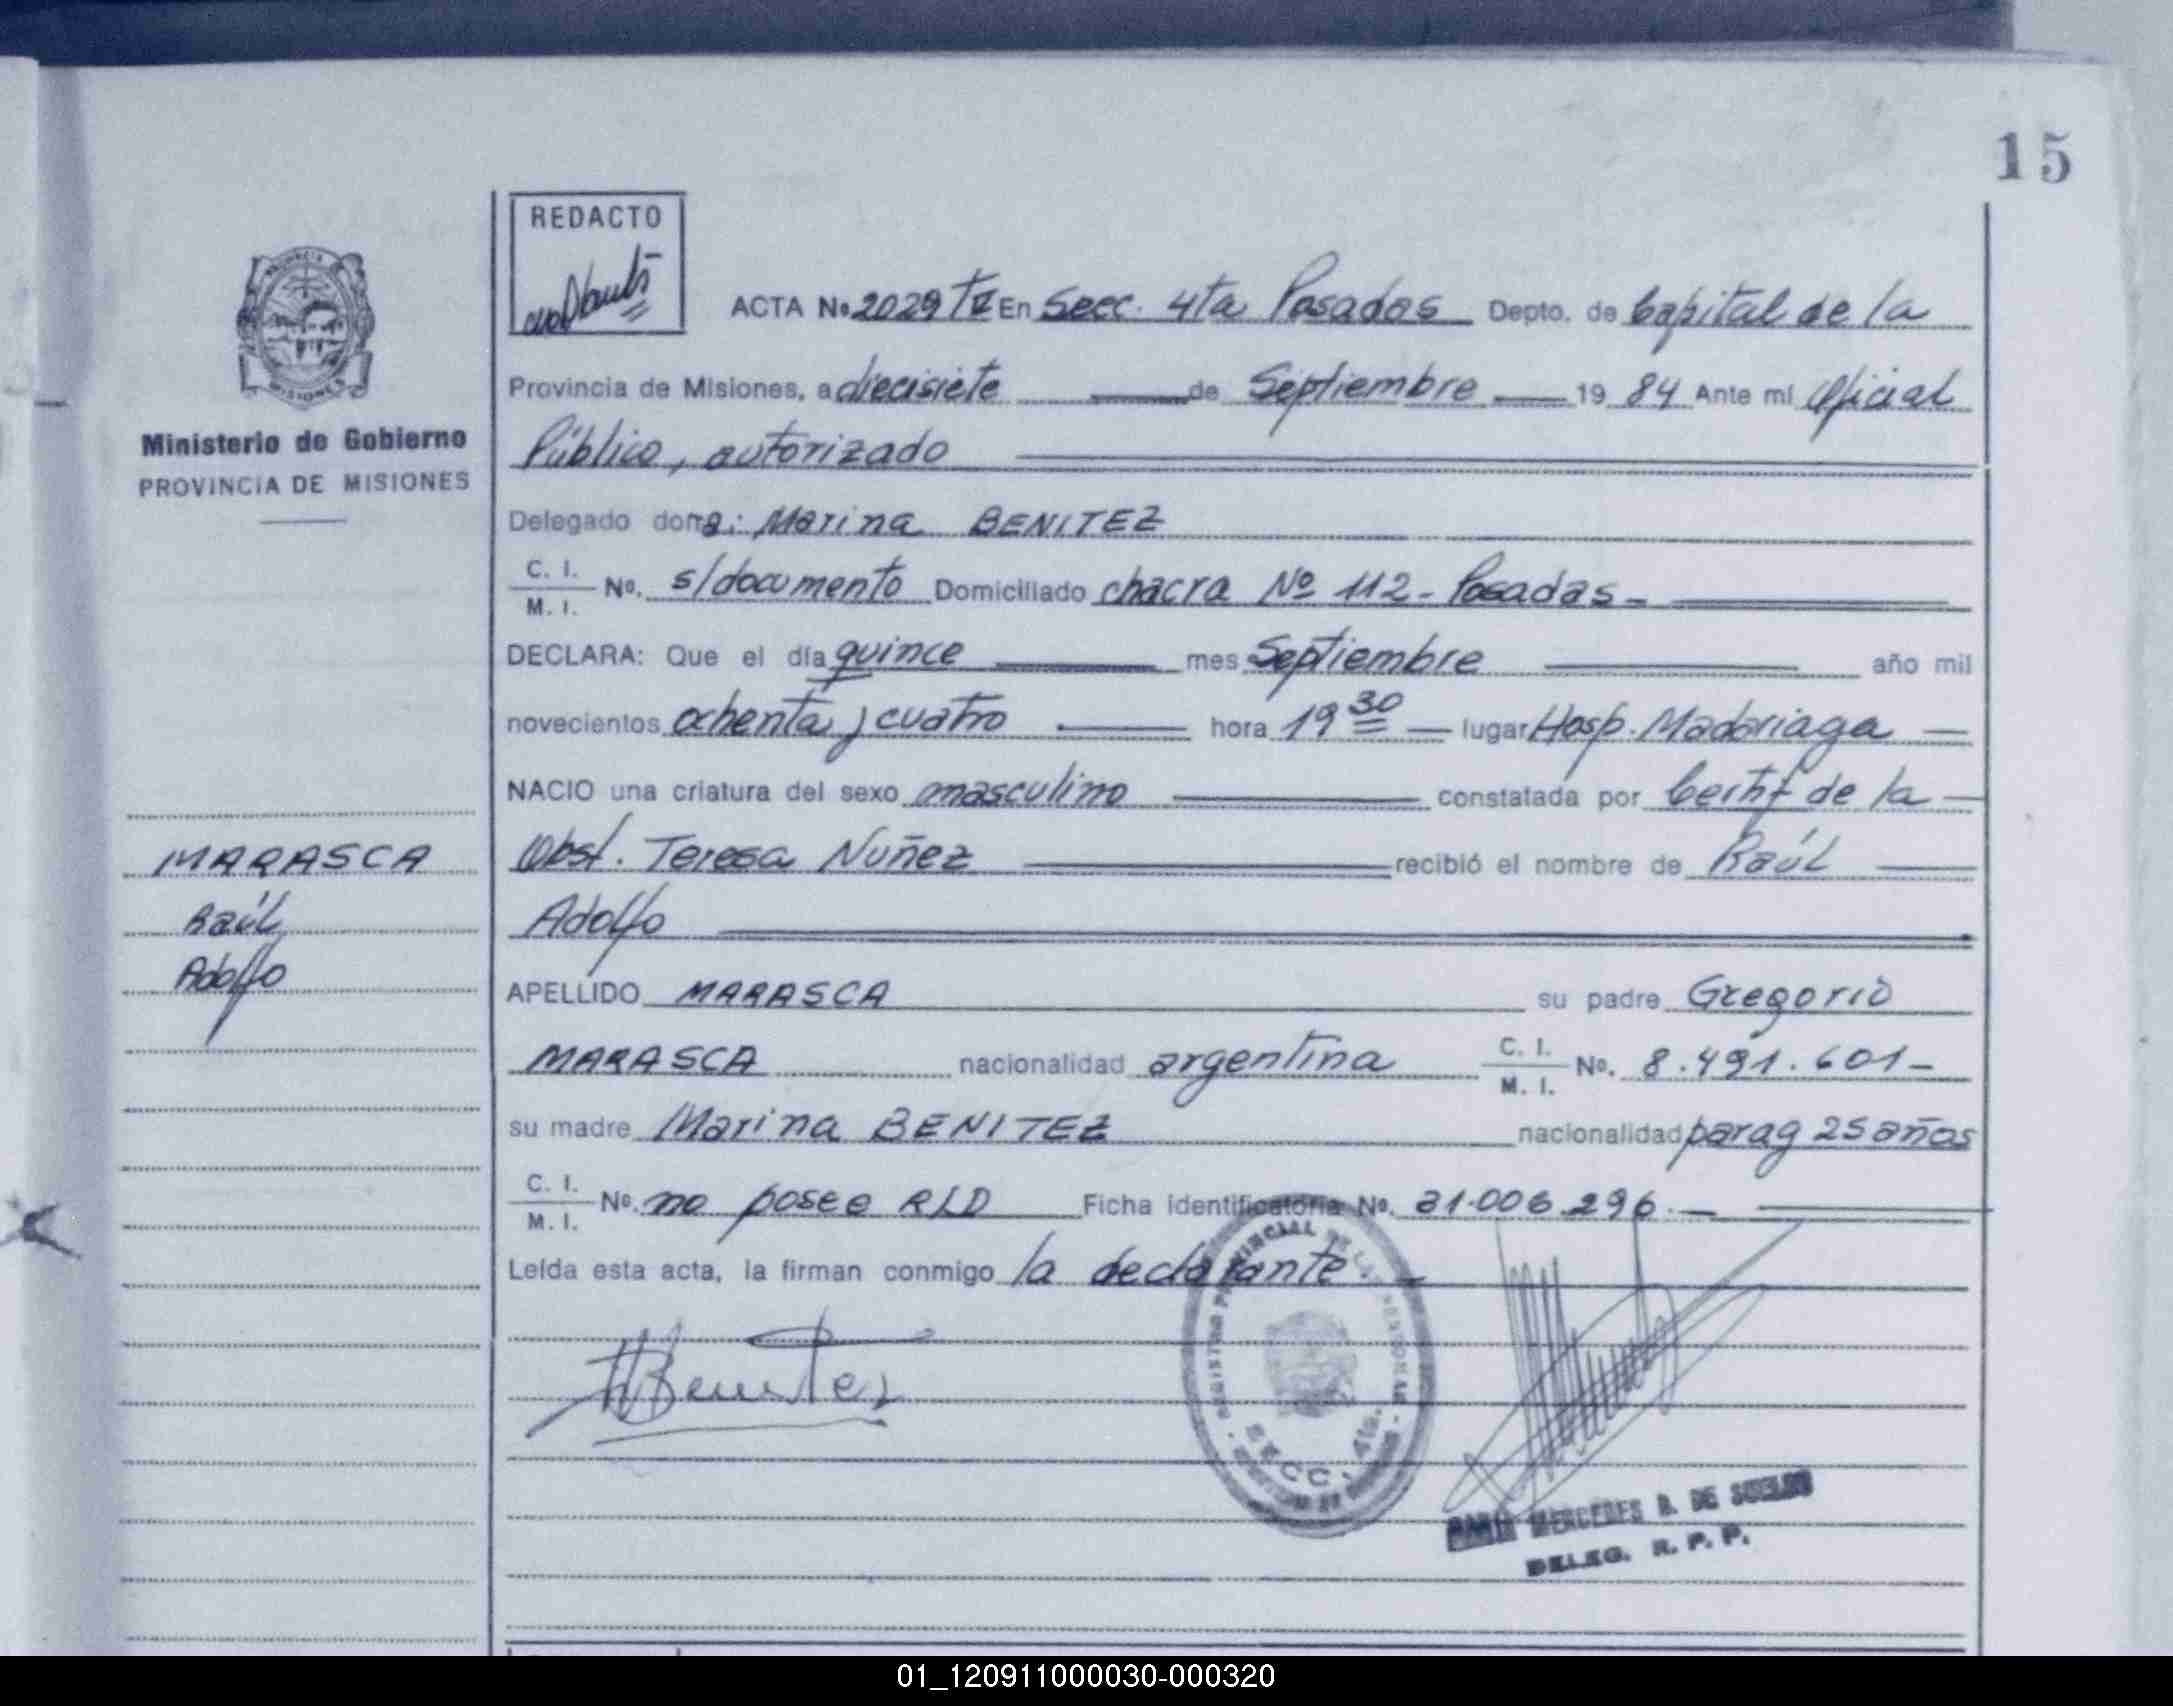 15
REDACTO
ACTA No 2029 TZ En Secc. 4ta Posadas Depto. de Capital de la
Provincia de Misiones, a diecisiete de Septiembre 19 84 Ante mí Oficial
Público, autorizado
Delegado doña: Marina BENITEZ
C. I.
M. I. No. s/documento Domiciliado chacra Nº 112 - Posadas -
DECLARA: Que el día quince mes Septiembre año mil
novecientos ochenta y cuatro hora 19 30 lugar Hosp. Madariaga
NACIO una criatura del sexo masculino constatada por Certif de la
Obst. Teresa Nuñez recibió el nombre de Raúl
Adolfo
APELLIDO MARASCA su padre Gregorio
MARASCA nacionalidad argentina C. I. M. I. No. 8.491.601 -
su madre Marina BENITEZ nacionalidad parag 25 años
C. I.
M. I. No. no posee RLD Ficha identificatoria No. 31.006.296. -
Leída esta acta, la firman conmigo la declarante. -
MBenitez
REGISTRO PROVINCIAL DE LAS PERSONAS
SECC. 4ta.
MERCEDES B. DE
DELEG. R. P. P.
PROVINCIA DE
MISIONES
Ministerio de Gobierno
PROVINCIA DE MISIONES
MARASCA
Raúl
Adolfo
01_120911000030-000320